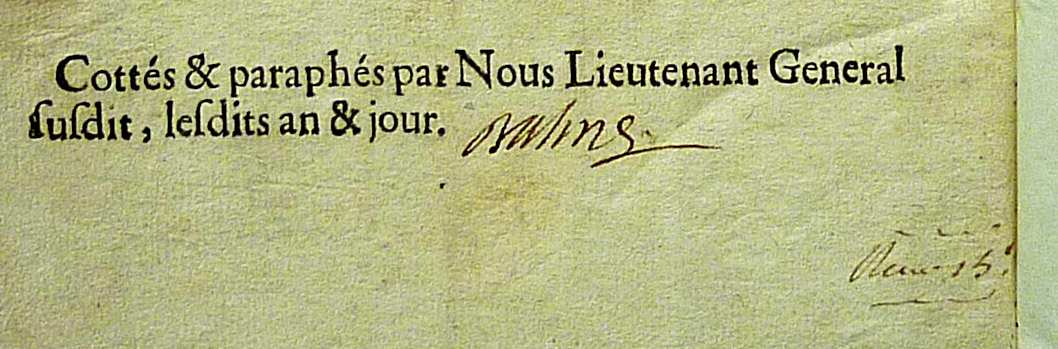 Cottés & paraphés par Nous Lieutenant General
ſuſdit, leſdits an & jour.